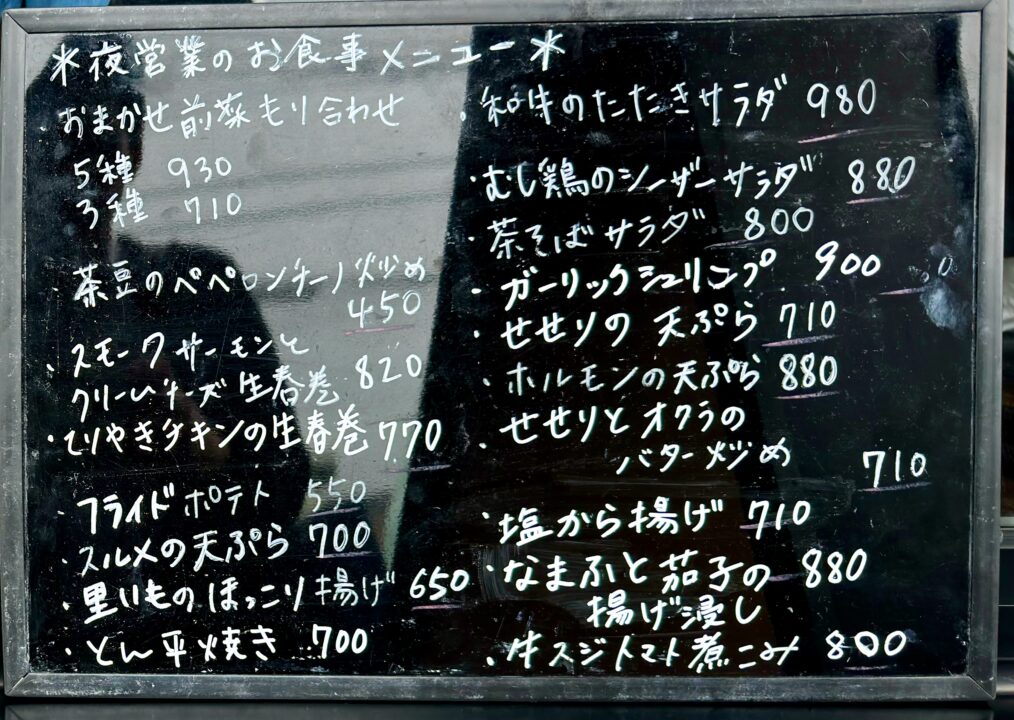 *夜営業のお食事メニュー*
・おまかせ前菜もり合わせ
5種 930
3種 710
・茶豆のペペロンチーノ炒め
450
・スモークサーモンと
クリームチーズ生春巻 820
・てりやきチキンの生春巻 770
・フライドポテト 550
・スルメの天ぷら 700
・里いものほっこり揚げ 650
・とん平焼き 700
・和牛のたたきサラダ 980
・むし鶏のシーザーサラダ 880
・茶そばサラダ 800
・ガーリックシュリンプ 900
・せせりの天ぷら 710
・ホルモンの天ぷら 880
・せせりとオクラの
バター炒め 710
・塩から揚げ 710
・なまふと茄子の 880
揚げ浸し
・牛スジトマト煮こみ 800